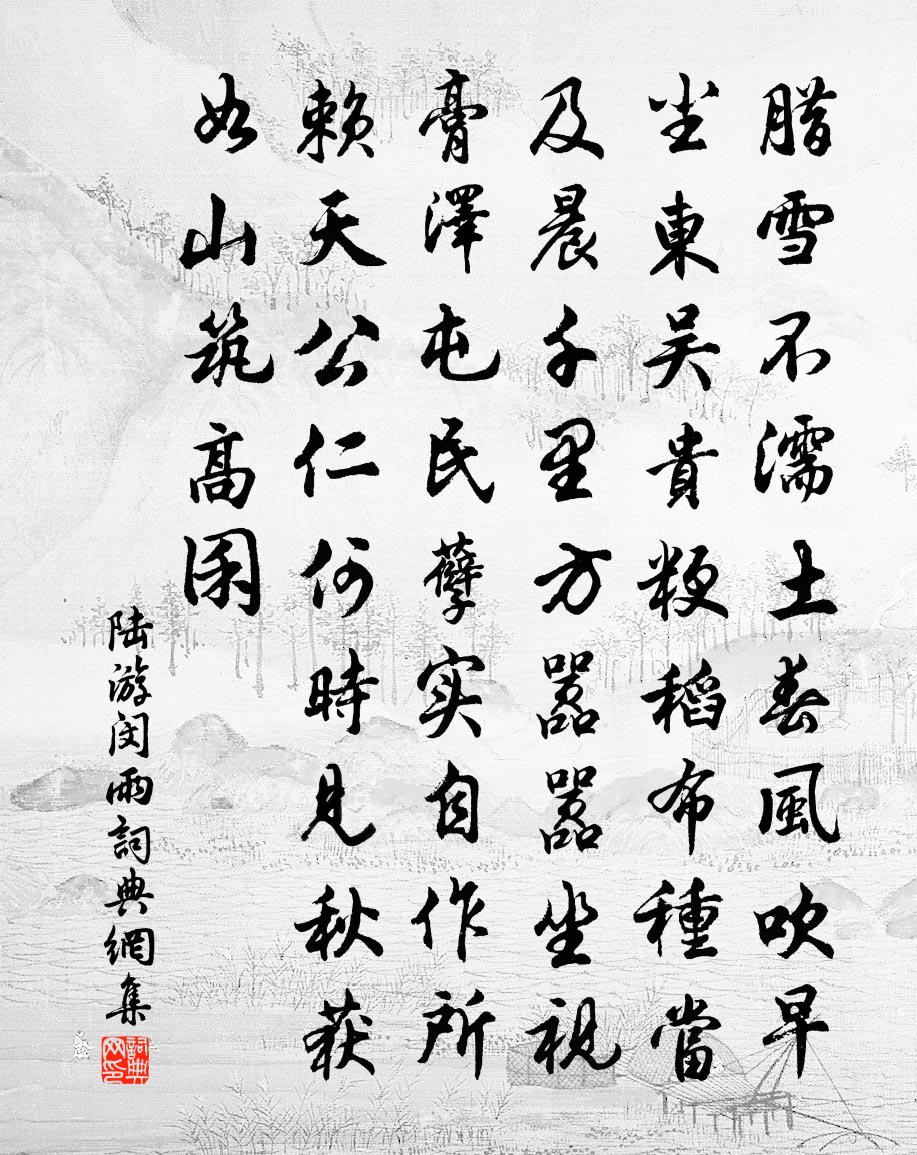 腊雪不濡土春風吹早
尘東吴貴粳稻布種當
及晨千里方嚣嚣坐視
膏澤屯民孽实自作所
赖天公仁何時見秋获
如山筑高囷
陆游闵雨詞典網集
詞典网印